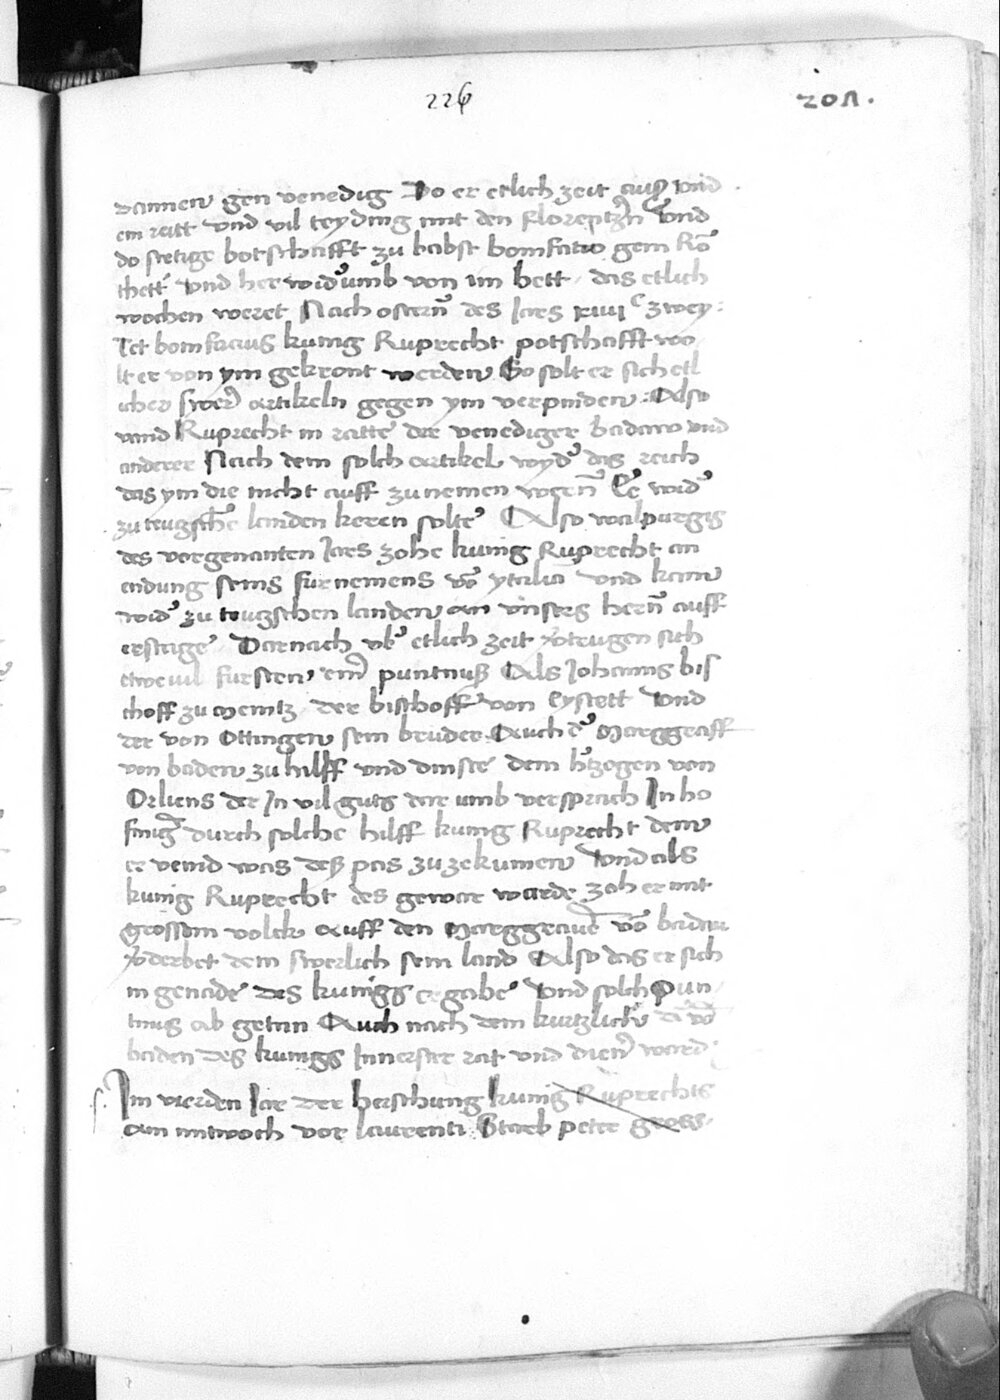 226
201.
dannen gen venedig Do er etlich zeit auß vnd
ein reitt vnd vil teyding mit den florentzn vnd
do stetige botschafft zu babst bonifacio gein Ro
thett vnd her widumb von im hett das etlich
wochen weret Nach ostern des Jars xiiii c zwey
Let bonifacius kunig Ruprecht potschafft wo
lt er von ym gekront werden So solt er sich etl
icher swer artikeln gegen ym verpinden Also
vand Ruprecht in ratte der venediger Badaw vnd
anderer Nach dem solch artikel wyd das reich
das ym die nicht auff zu nemen weren Er wid
zu teutzsche landen keren solte Also walpurgis
des vorgenanten Jars zohe kunig Ruprecht an
endung seins furnemens vo ytalia vnd kam
wid zu teutzschen landen an vnsers hern auff
ersteige Darnach vb etlich zeit vtrugen sich
etweuil fursten eini puntnuß Als Johanns bis
choff zu Meintz der bischoff von Eystett vnd
der von Ottingen sein bruder Auch d Marggraff
von baden zu hilff vnd dinste dem htzogen von
Orliens der In vil guts dar umb versprach In ho
fnug durch solche hilff kunig Ruprecht dem
er veind was deß pas zu zekumen vnd als
kunig Ruprecht des gewar warde zoh er mit
grossem volck auff den Marggraue vo baden
vderbet dem swerlich sein land Also das er sich
in genade des kunigs ergabe vnd solch pun
tnus ab getan Auch nach dem kurtzlich d vo
baden des kunigs Innerster rat vnd diener ward
Im vierden Jar der herschung kunig Ruprechts
am mitwoch vor laurenti Starb peter gross